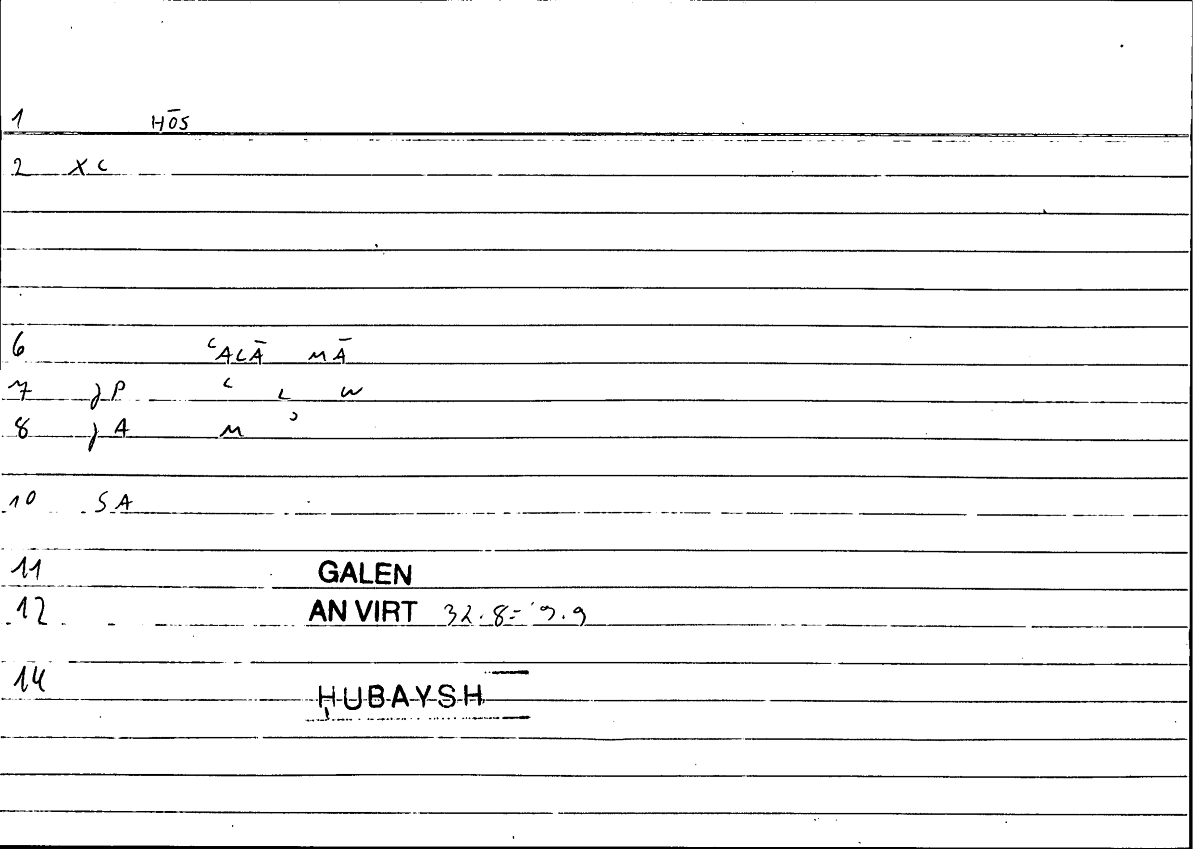 1 HŌS
2 X C
6 ʿALĀ MĀ
7 JP ʿ L W
8 JA M ʾ
10 SA
11 GALEN
12 AN VIRT 32.8=
14 ḤUBAYSH